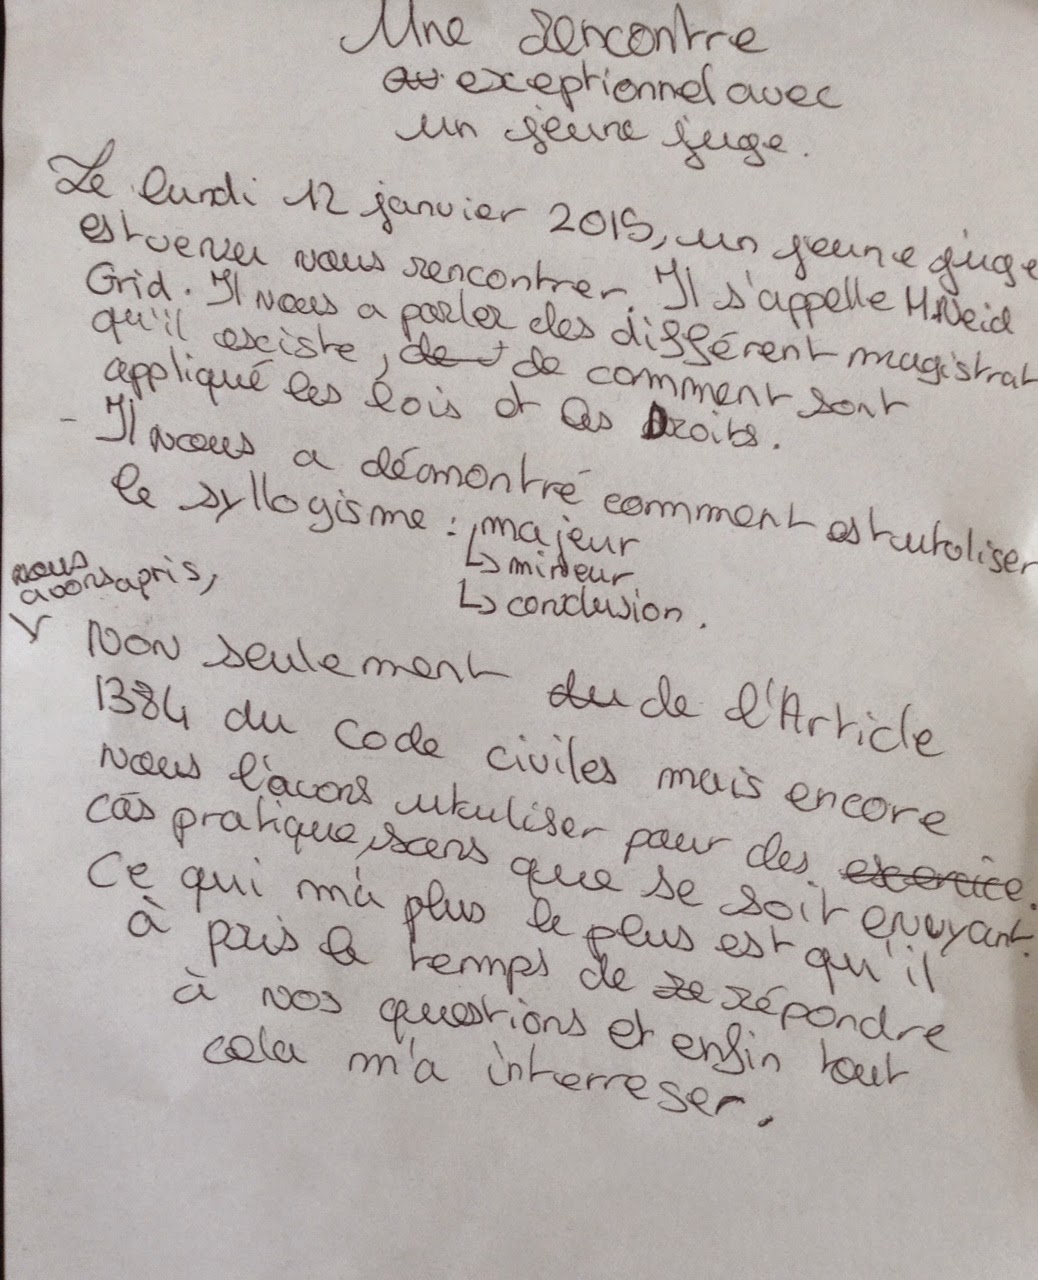 Une rencontre
exceptionnel avec
un jeune juge.
Le lundi 12 janvier 2015, un jeune juge
est venu nous rencontrer. Il s'appelle M.Neid
Grid. Il nous a parler des différent magistrat
qu'il esciste, de comment sont
appliqué les lois et les Droits.
- Il nous a démontré comment est utoliser
le syllogisme : majeur
↳ mineur
↳ conclusion.
nous
avons apris,
Non seulement de l'Article
1384 du code civiles mais encore
nous l'avons utuliser pour des
cas pratique, sans que se soit envyant.
Ce qui m'a plus le plus est qu'il
à pris le temps de répondre
à nos questions et enfin tout
cela m'a interreser.